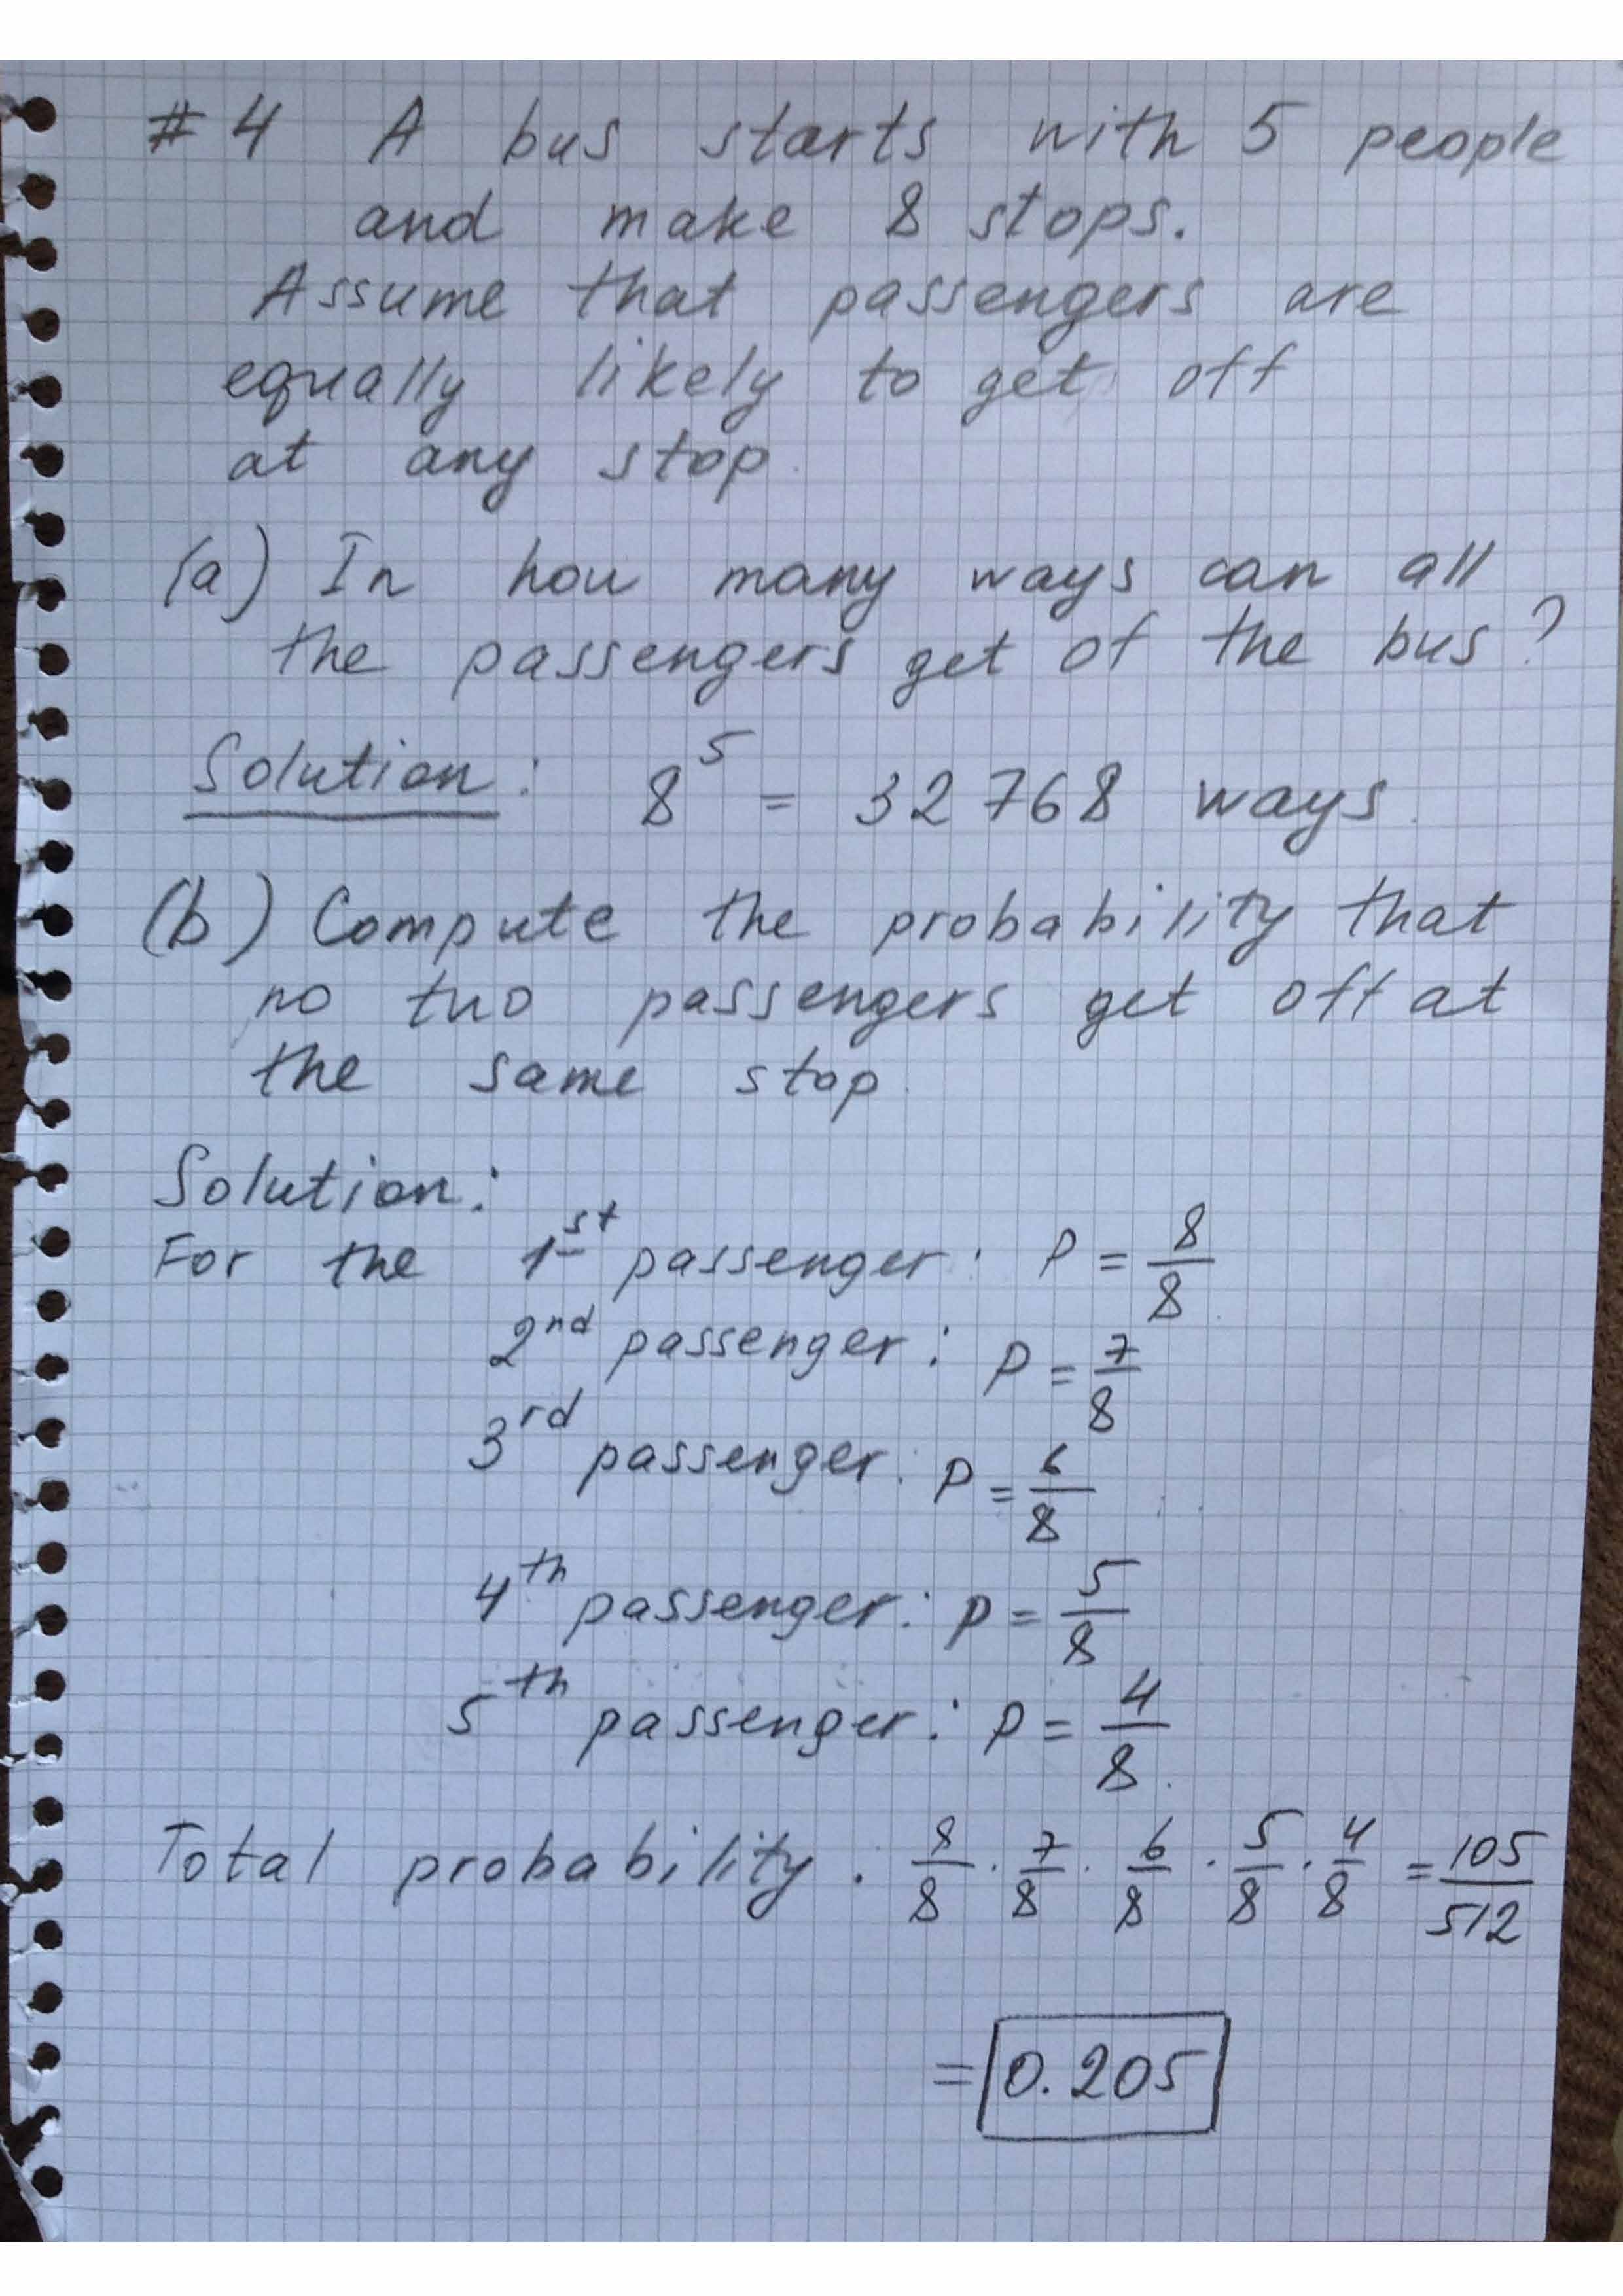 #4 A bus starts with 5 people
and make 8 stops.
Assume that passengers are
equally likely to get off
at any stop.
(a) In how many ways can all
the passengers get of the bus?
Solution: 8^5 = 32 768 ways.
(b) Compute the probability that
no two passengers get off at
the same stop.
Solution:
For the 1st passenger: P = 8/8
2nd passenger: P = 7/8
3rd passenger: P = 6/8
4th passenger: P = 5/8
5th passenger: P = 4/8.
Total probability: 8/8 · 7/8 · 6/8 · 5/8 · 4/8 = 105/512
= 0.205